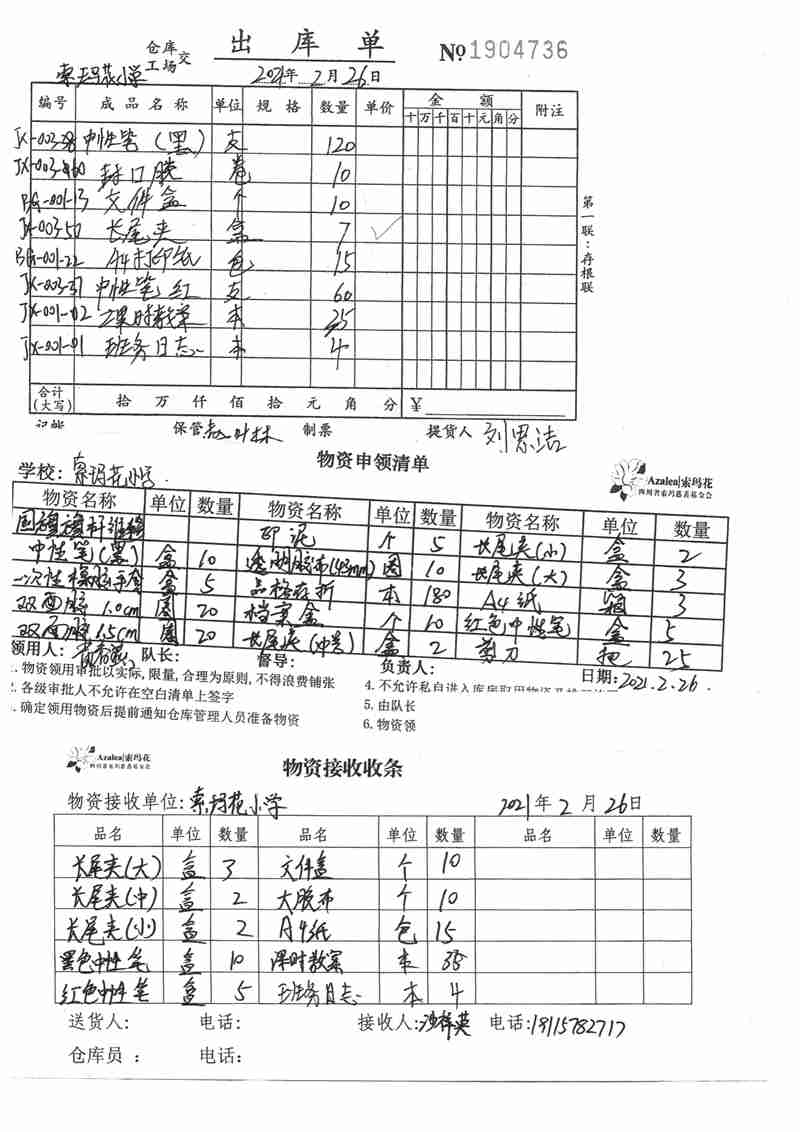 仓库 交 出 库 单 № 1904736
工场
索玛花小学 2021年 2月26日
编号 成品名称 单位 规格 数量 单价 金额 附注
十 万 千 百 十 元 角 分
JX-003-38 中性笔（黑） 支 120
封口胶 卷 10
BG-001-13 文件盒 个 10
JX-003-50 长尾夹 盒 7
BG-001-22 A4打印纸 包 15
JX-003-37 中性笔红 支 60
JX-001-02 课时教案 本 35
JX-001-01 班务日志 本 4
第一联：存根联
合计(大写) 拾 万 仟 佰 拾 元 角 分 ¥
记账 保管 制票 提货人 刘思洁
物资申领清单
学校：索玛花小学
Azalea|索玛花
四川省索玛慈善基金会
物资名称 单位 数量 物资名称 单位 数量 物资名称 单位 数量
印泥 个 5 长尾夹(小) 盒 2
中性笔(黑) 盒 10 透明胶布(48mm) 圈 10 长尾夹(大) 盒 3
一次性橡胶手套 盒 5 本 180 A4纸 箱 3
双面胶 1.0cm 圈 20 档案盒 个 10 红色中性笔 盒 5
双面胶1.5cm 圈 20 长尾夹(中号) 盒 2 剪刀 把 25
领用人： 队长： 督导： 负责人： 日期：2021.2.26.
1. 物资领用审批以实际，限量，合理为原则，不得浪费铺张
4. 不允许私自进入库房取用物资
2. 各级审批人不允许在空白清单上签字
5. 由队长
3. 确定领用物资后提前通知仓库管理人员准备物资
6. 物资领
Azalea|索玛花
四川省索玛慈善基金会
物资接收收条
物资接收单位：索玛花小学 2021年 2 月 26日
品名 单位 数量 品名 单位 数量 品名 单位 数量
长尾夹(大) 盒 3 文件盒 个 10
长尾夹(中) 盒 2 大胶布 个 10
长尾夹(小) 盒 2 A4纸 包 15
黑色中性笔 盒 10 课时教案 本 35
红色中性笔 盒 5 班务日志 本 4
送货人： 电话： 接收人：沙梓英 电话：18115782717
仓库员： 电话：